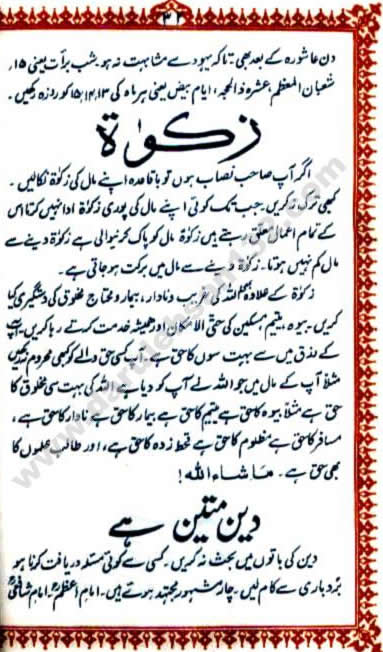 ۳۲
دن عاشورہ کے بعد بھی تاکہ یہود سے مشابہت نہ ہو۔ شب برأت یعنی ۱۵؍
شعبان المعظم عشرہ ذالحجہ، ایام بیض یعنی ہر ماہ کی ۱۳،۱۴،۱۵ کو روزہ رکھیں۔
زکوٰۃ
اگر آپ صاحب نصاب ہوں تو باقاعدہ اپنے مال کی زکوٰۃ نکالیں۔
کبھی ترک نہ کریں۔ جب تک کوئی اپنے مال کی پوری زکوٰۃ ادا نہیں کرتا اس
کے تمام اعمال معلق رہتے ہیں زکوٰۃ مال کو پاک کرنیوالی ہے زکوٰۃ دینے سے
مال کم نہیں ہوتا۔ زکوٰۃ دینے سے مال میں برکت ہو جاتی ہے۔
زکوٰۃ کے علاوہ بھی اللہ کی غریب و نادار، بیمار و محتاج مخلوق کی دستگیری کیا
کریں۔ بیوہ، یتیم، مسکین کی حتی الامکان اور ہمیشہ خدمت کرتے رہا کریں۔ آپ
کے رزق میں سے بہت سوں کا حق ہے۔ آپ کسی حق والے کو کبھی محروم نہ کریں
مثلاً آپ کے مال میں جو اللہ نے آپ کو دیا ہے اللہ کی بہت سی مخلوق کا
حق ہے مثلاً بیوہ کا حق ہے یتیم کا حق ہے بیمار کا حق ہے نادار کا حق ہے،
مسافر کا حق ہے مظلوم کا حق ہے قحط زدہ کا حق ہے، اور طالب علموں کا
بھی حق ہے۔ ماشاء اللہ!
دین متین ہے
دین کی باتوں میں بحث نہ کریں۔ کسی سے کوئی مسئلہ دریافت کرنا ہو
بردباری سے کام لیں۔ چار مشہور مجتہد ہوئے ہیں۔ امام اعظمؒ، امام شافعیؒ